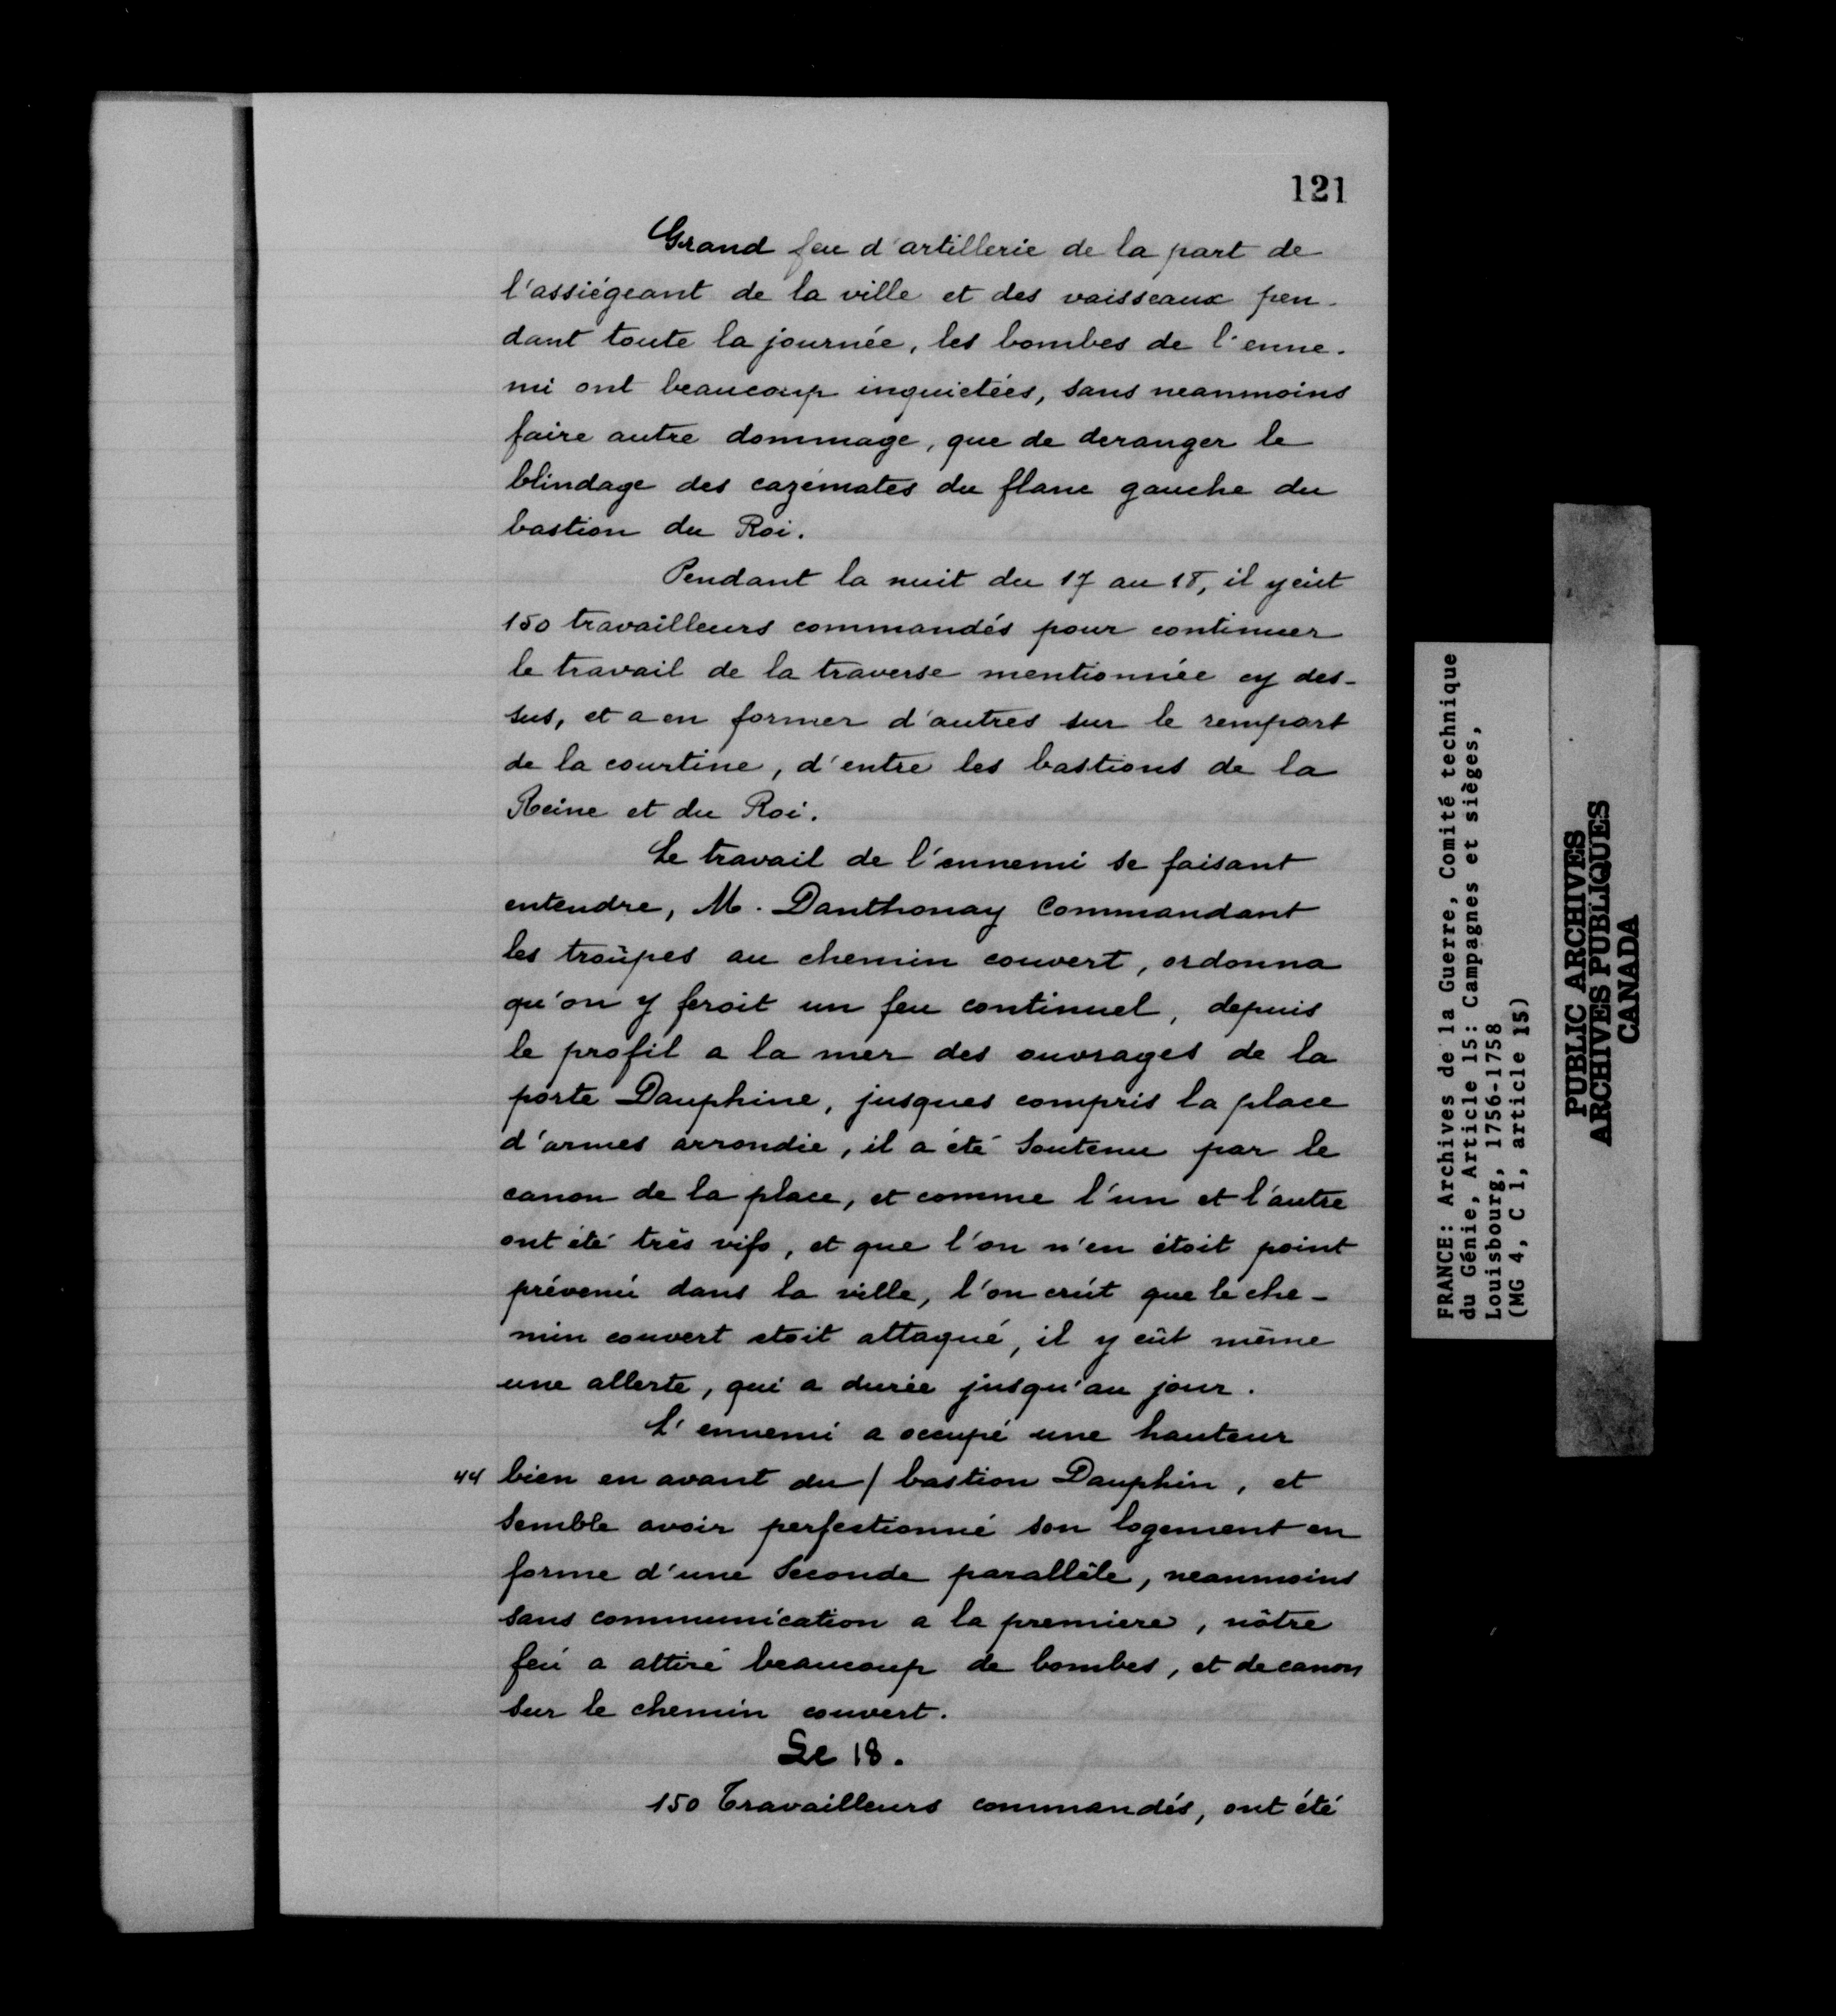 121
Grand feu d'artillerie de la part de
l'assiégeant de la ville et des vaisseaux pen-
dant toute la journée, les bombes de l'enne-
mi ont beaucoup inquietées, sans neanmoins
faire autre dommage, que de deranger le
blindage des cazemates du flanc gauche du
bastion du Roi.
Pendant la nuit du 17 au 18, il y eût
150 travailleurs commandés pour continuer
le travail de la traverse mentionnée cy des-
sus, et a en former d'autres sur le rempart
de la courtine, d'entre les bastions de la
Reine et du Roi.
Le travail de l'ennemi se faisant
entendre, M. Danthonay Commandant
les troûpes au chemin couvert, ordonna
qu'on y feroit un feu continuel, depuis
le profil a la mer des ouvrages de la
porte Dauphine, jusques compris la place
d'armes arrondie, il a été Soutenu par le
canon de la place, et comme l'un et l'autre
ont été très vifs, et que l'on n'en étoit point
prévenú dans la ville, l'on crût que le che-
min couvert etoit attaqué, il y eût même
une allerte, qui a durée jusqu'au jour.
L'ennemi a occupé une hauteur
44 bien en avant du / bastion Dauphin, et
semble avoir perfectionné son logement en
forme d'une Seconde parallêle, neanmoins
sans communication a la premiere, nôtre
feú a attiré beaucoup de bombes, et de canon
sur le chemin couvert.
Le 18.
150 Travailleurs commandés, ont été
FRANCE: Archives de la Guerre, Comité technique
du Génie, Article 15: Campagnes et sièges,
Louisbourg, 1756-1758
(MG 4, C 1, article 15)
PUBLIC ARCHIVES
ARCHIVES PUBLIQUES
CANADA